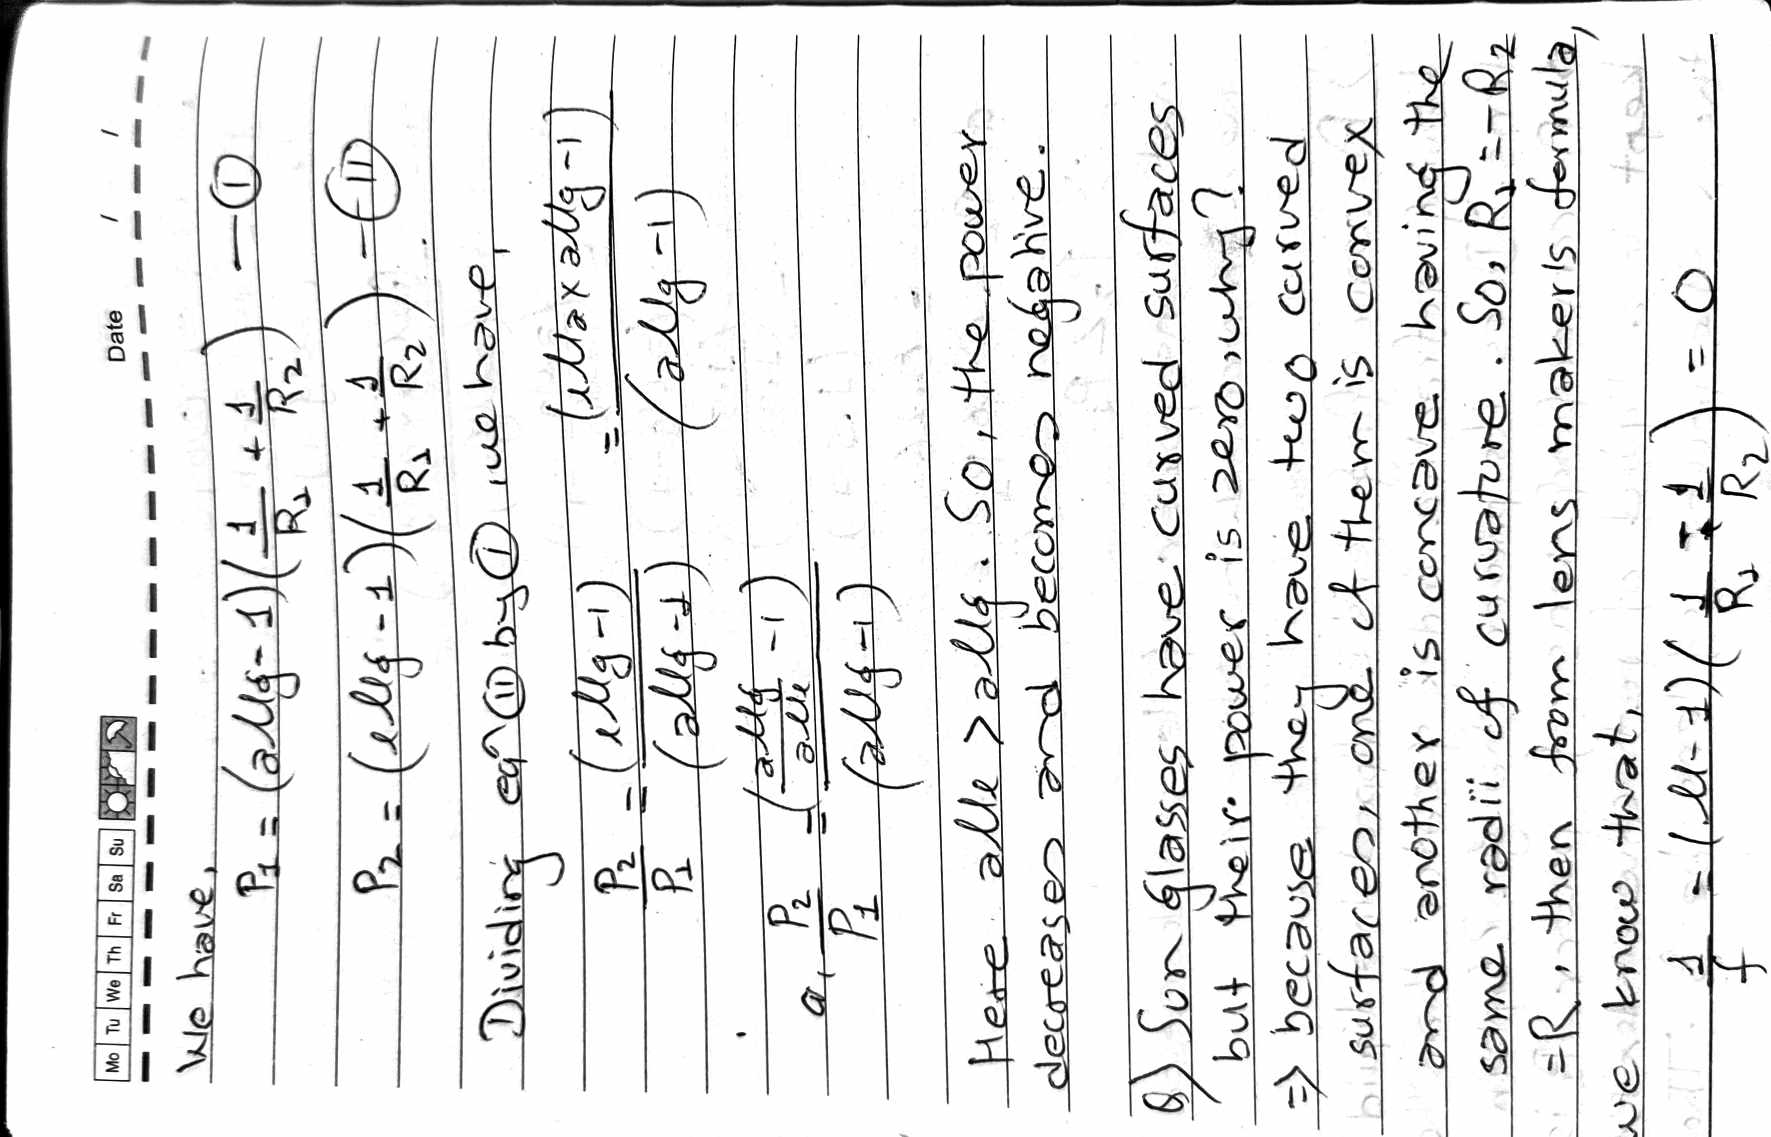 Mo Tu We Th Fr Sa Su Date / /
We have,
P1 = (aμg-1)(1/R1 + 1/R2) — (I)
P2 = (eμg-1)(1/R1 + 1/R2) — (II)
Dividing eqn (II) by (I), we have,
P2/P1 = (eμg-1)/(aμg-1) = (eμa x aμg-1)/(aμg-1)
or, P2/P1 = (aμg/aμe - 1)/(aμg-1)
Here aμe > aμg. So, the power
decreases and becomes negative.
Q) Sun glasses have curved surfaces
but their power is zero, why?
=> because they have two curved
surfaces, one of them is convex
and another is concave having the
same radii of curvature. So, R1 = -R2
=R, then from lens maker's formula,
we know that,
1/f = (μ-1)(1/R1 - 1/R2) = 0